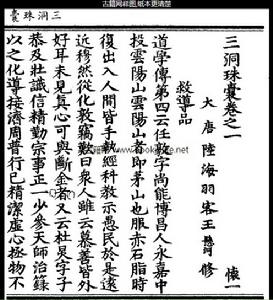 古籍网祥图，纸本更清楚
三洞珠囊
三洞珠囊卷之一
懷一
大唐陸海羽客王懸河修
救導品
道學傳第四云任敦字尚能博昌人永嘉中
投雲陽山雲陽山者即茅山也服赤石脂時
復出入人間皆手執經科教示愚民於是遠
近穆然從化敦竊歎曰衆人雖云慕善皆外
好耳未見真心可與斷金者又云杜炅字子
恭及壯識信精勤宗事正一少參天師治籙
以之化導接濟周普行已精潔虛心拯物不